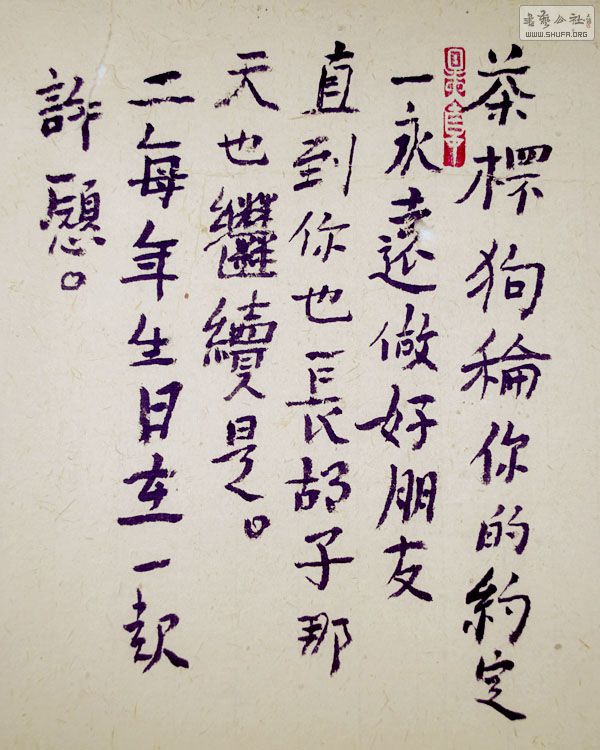 茶杯狗稐你的約定
一永遠做好朋友
直到你也長胡子那
天也繼續是。
二每年生日在一起
許願。
書藝公社
WWW.SHUFA.ORG